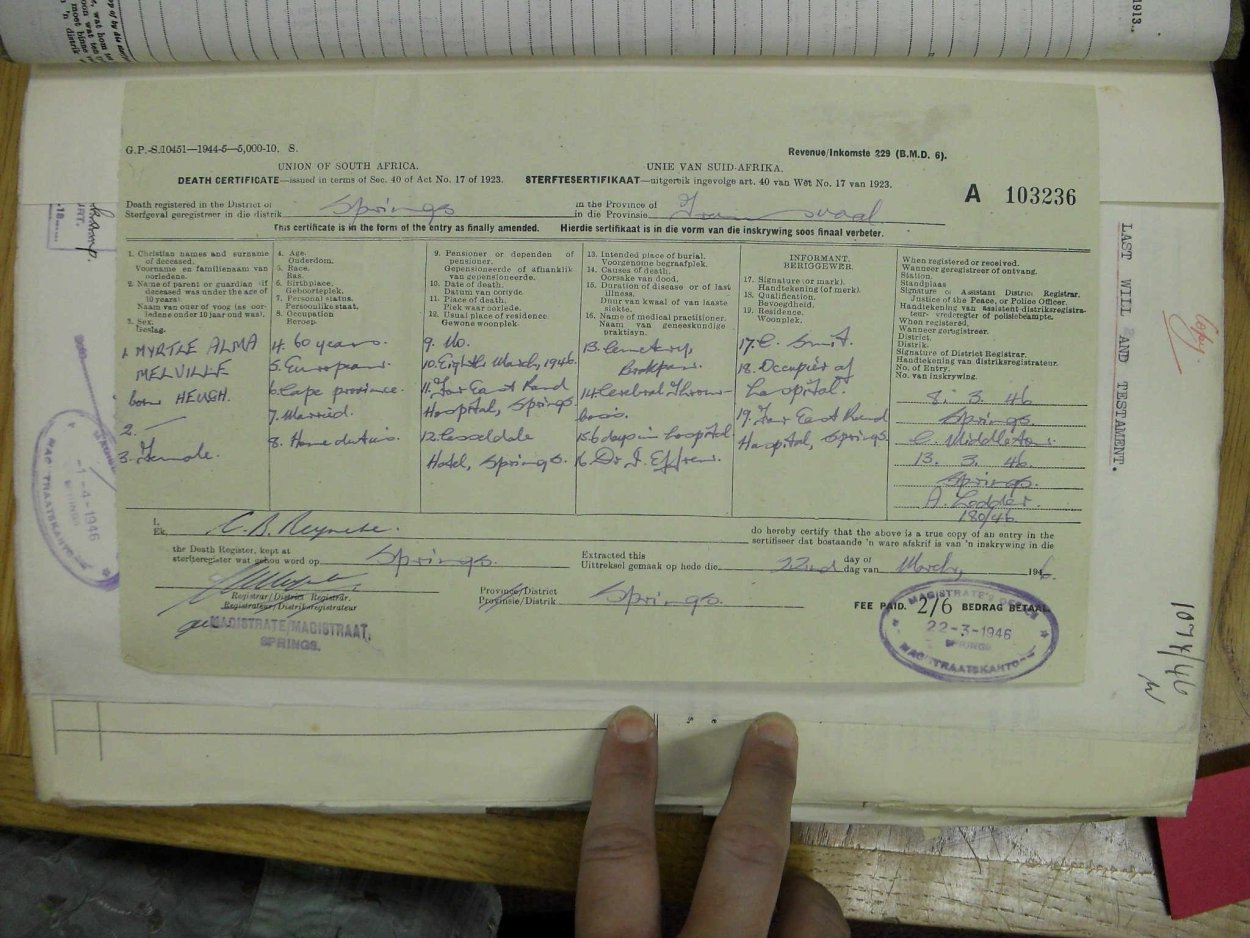 1913.
G.P.-S.10451—1944-5—5,000-10. S.
Revenue/Inkomste 229 (B.M.D. 6).
UNION OF SOUTH AFRICA.
UNIE VAN SUID-AFRIKA.
DEATH CERTIFICATE—issued in terms of Sec. 40 of Act No. 17 of 1923.
STERFTESERTIFIKAAT—uitgereik ingevolge art. 40 van Wet No. 17 van 1923.
A 103236
Death registered in the District of
Sterfgeval geregistreer in die distrik Springs
in the Province of
in die Provinsie Transvaal
This certificate is in the form of the entry as finally amended. Hierdie sertifikaat is in die vorm van die inskrywing soos finaal verbeter.
1. Christian names and surname
of deceased.
Voorname en familienaam van
oorledene.
2. Name of parent or guardian (if
deceased was under the age of
10 years)
Naam van ouer of voog (as oor-
ledene onder 10 jaar oud was).
3. Sex.
Geslag.
1. MYRTLE ALMA
MELVILLE
born HEUGH.
2. —
3. Female.
4. Age.
Ouderdom.
5. Race.
Ras.
6. Birthplace.
Geboorteplek.
7. Personal status.
Persoonlike staat.
8. Occupation
Beroep.
4. 60 years.
5. European.
6. Cape province.
7. Married.
8. Home duties.
9. Pensioner or dependen of
pensioner.
Gepensioeneerde of afhanklik
van gepensioeneerde.
10. Date of death.
Datum van oorlyde.
11. Place of death.
Plek waar oorlede.
12. Usual place of residence.
Gewone woonplek.
9. No.
10. Eighth March, 1946.
11. Far East Rand
Hospital, Springs
12. Casseldale
Hotel, Springs.
13. Intended place of burial.
Voorgenome begraafplek.
14. Causes of death.
Oorsake van dood.
15. Duration of disease or of last
illness.
Duur van kwaal of van laaste
siekte.
16. Name of medical practitioner.
Naam van geneeskundige
praktisyn.
13. Cemetery,
Brakpan.
14. Cerebral Throm-
bosis.
15. 6 days in hospital
16. Dr. J. Effren.
INFORMANT.
BERIGGEWER.
17. Signature (or mark).
Handtekening (of merk).
18. Qualification.
Bevoegdheid.
19. Residence.
Woonplek.
17. C. Smit.
18. Occupier of
hospital.
19. Far East Rand
Hospital, Springs.
When registered or received.
Wanneer geregistreer of ontvang.
Station.
Standplaas
Signature of Assistant District Registrar,
Justice of the Peace, or Police Officer.
Handtekening van assistent-distriksregistra-
teur- vrederegter of polisiebeampte.
When registered.
Wanneer geregistreer.
District.
Distrik.
Signature of District Registrar.
Handtekening van distriksregistrateur.
No. of Entry.
No. van inskrywing.
8. 3. 46
Springs.
C. Middleton.
13. 3. 46.
Springs.
A. Lodder.
180/46
I,
Ek, C. B. Reyneke.
do hereby certify that the above is a true copy of an entry in the
sertifiseer dat bostaande 'n ware afskrif is van 'n inskrywing in die
the Death Register, kept at
sterfteregister wat gehou word op Springs.
Extracted this
Uittreksel gemaak op hede die 22nd day of
dag van March, 1946.
Registrar/District Registrar.
Registrateur/Distriksregistrateur
MAGISTRATE/MAGISTRAAT,
SPRINGS.
Province/District
Provinsie/Distrik Springs.
FEE PAID. 2/6 BEDRAG BETAAL
MAGISTRATE'S OFFICE
22-3-1946
SPRINGS
MAGISTRAATSKANTOOR
1-4-1946
SPRINGS
LAST WILL AND TESTAMENT.
Copy.
1074/46